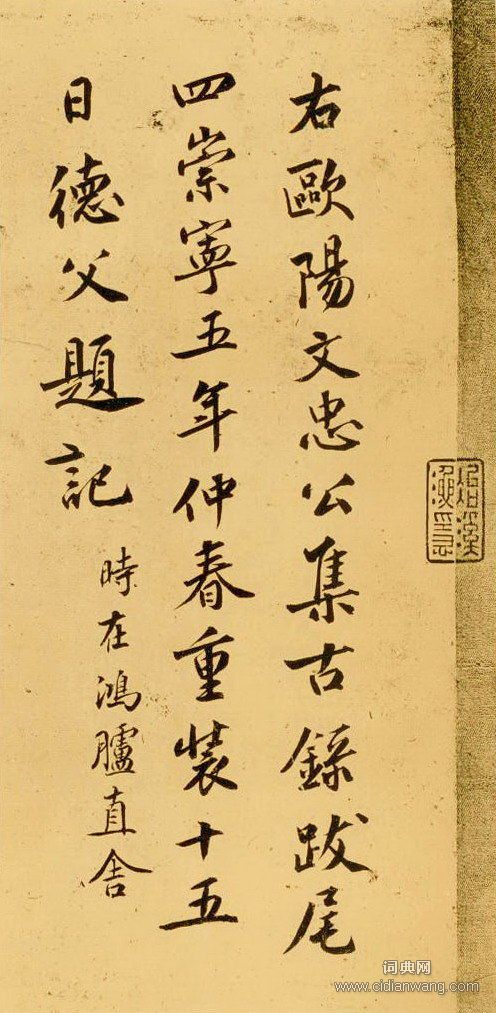 右歐陽文忠公集古錄跋尾
四崇寧五年仲春重裝十五
日德父題記
時在鴻臚直舍
词典网
www.cidianwang.com